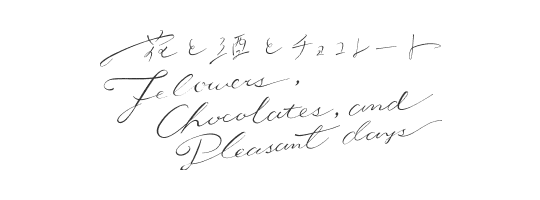 花と酒とチョコレート
Felowers,
Chocolates, and
Pleasant days